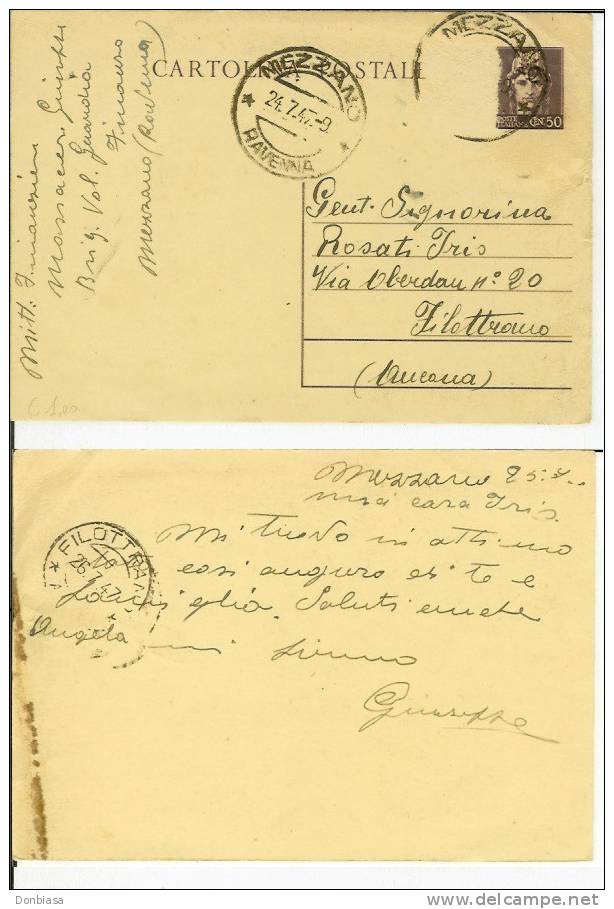 CARTOLINA POSTALE
MEZZANO
24.7.47.-9
RAVENNA
MEZZANO
POSTE ITALIANE
CEN. 50
Mitt. Finanziere
Massacesi Giuseppe
Brig. Vol. Guardia
Finanza
Mezzano (Ravenna)
Gent. Signorina
Rosati Iris
Via Oberdan n° 20
Filottrano
(Ancona)
€ 1,00
Mezzano 25.7..
mia cara Iris.
Mi trovo in ottimo
così auguro di te e
famiglia. Saluti anche
Angela
mi firmo
Giuseppe
FILOTTRANO
26.7.47
Donbiasa
www.delcampe.net